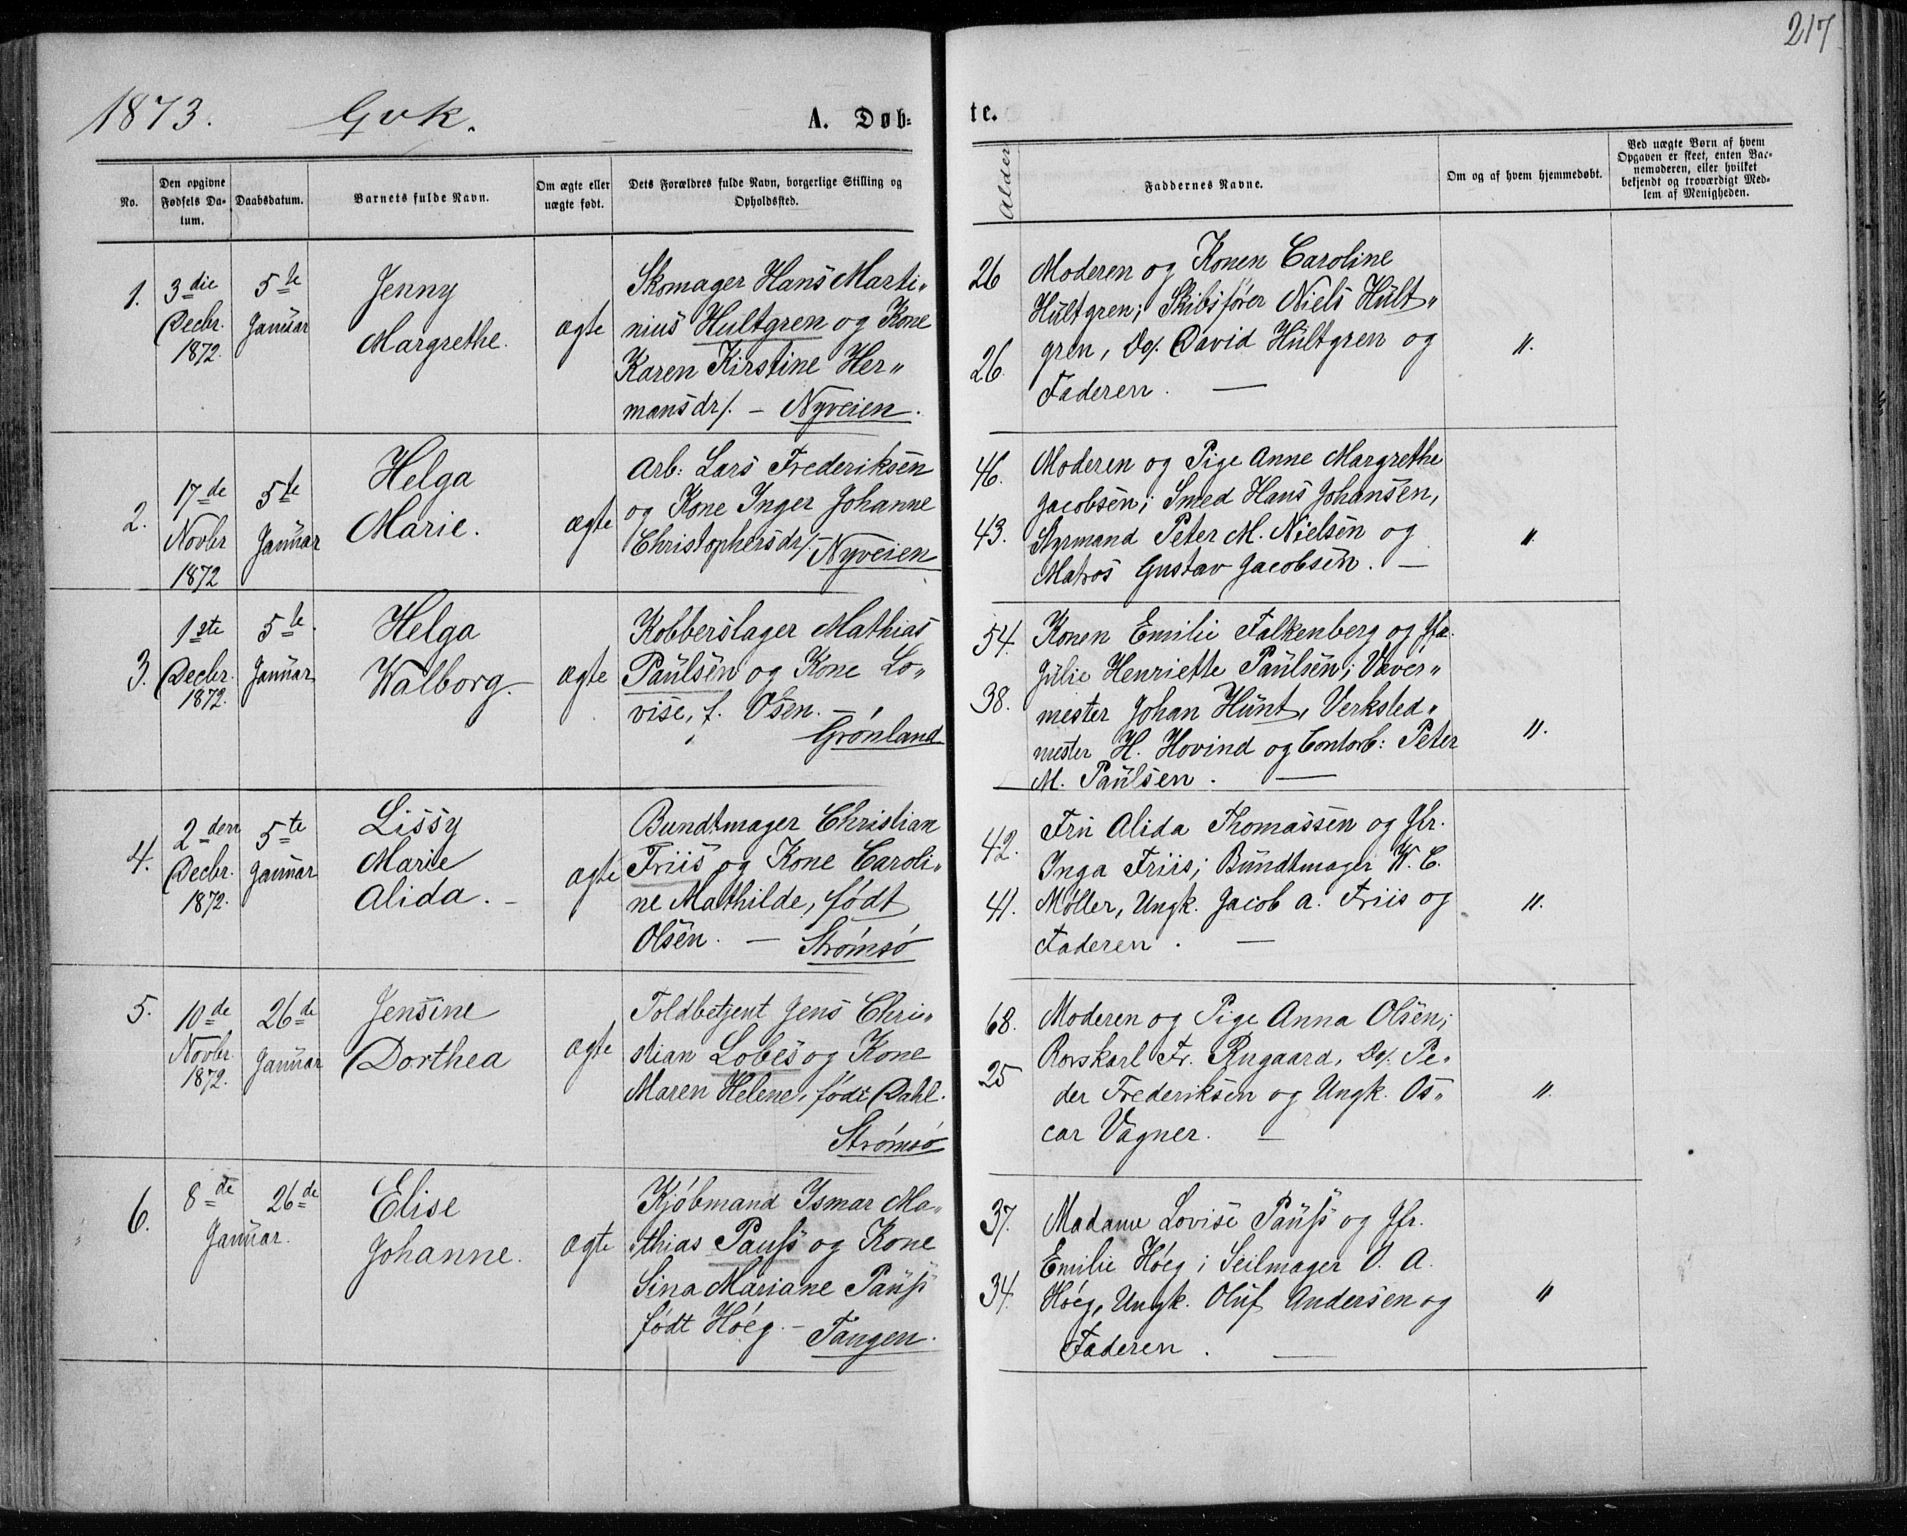 217
1873. Gvk. A. Døb- te.
No.
Den opgivne
Fødsels Da-
tum.
Daabsdatum.
Barnets fulde Navn.
Om ægte eller
uægte født.
Dets Forældres fulde Navn, borgerlige Stilling og
Opholdssted.
Alder
Faddernes Navne.
Om og af hvem hjemmedøbt.
Ved uægte Børn af hvem
Opgaven er skeet, enten Bar-
nemoderen, eller hvilket
bekjendt og troværdigt Med-
lem af Menigheden.
1.
3die
Decbr.
1872.
5te
Januar
Jenny
Margrethe.
ægte
Skomager Hans Marti-
nius Hultgren og Kone
Karen Kirstine Her-
mansdr/. - Nyveien.
26
26.
Moderen og Konen Caroline
Hultgren; Skibsfører Niels Hult-
gren, Do/. David Hultgren og
Faderen. —
"
2.
17de
Novbr
1872
5te
Januar
Helga
Marie.
ægte
Arb: Lars Frederiksen
og Kone Inger Johanne
Christophersdr/. Nyveien
46.
43.
Moderen og Pige Anne Margrethe
Jacobsen; Smed Hans Johansen,
Styrmand Peter M. Nielsen og
Matros Gustav Jacobsen. —
"
3.
1ste
Decbr.
1872.
5te
Januar
Helga
Walborg.
ægte
Kobberslager Mathias
Paulsen og Kone Lo-
vise, f. Olsen. —
Grønland
54.
38.
Konen Emilie Falkenberg og Jfr.
Julie Henriette Paulsen; Væver-
mester Johan Hünt, Verksted-
mester H. Hovind og Contorb: Peter
M. Paulsen. —
"
4.
2den
Decbr.
1872.
5te
Januar
Lissy
Marie
Alida. -
ægte
Bundtmager Christian
Friis og Kone Caroli-
ne Mathilde, født
Olsen. — Strømsø
42.
41.
Fru Alida Thomassen og Jfr.
Inga Friis; Bundtmager W. C.
Møller, Ungk. Jacob A. Friis og
Faderen. —
"
5.
10de
Novbr.
1872.
26de
Januar
Jensine
Dorthea
ægte
Toldbetjent Jens Chri-
stian Lobes og Kone
Maren Helene, født Dahl.
Strømsø
68.
25
Moderen og Pige Anna Olsen;
Rorskarl Fr. Rugaard, Do/. Pe-
der Frederiksen og Ungk. Os-
car Vagner. —
"
6.
8de 26de
Januar.
Elise
Johanne.
ægte
Kjøbmand Ismar Ma-
thias Pauss og Kone
Sina Mariane Pauss
født Høeg. - Tangen.
37.
34.
Madame Lovise Pauss og Jfr.
Emilie Høeg; Seilmager O. A.
Høeg, Ungk. Oluf Andersen og
Faderen. —
"